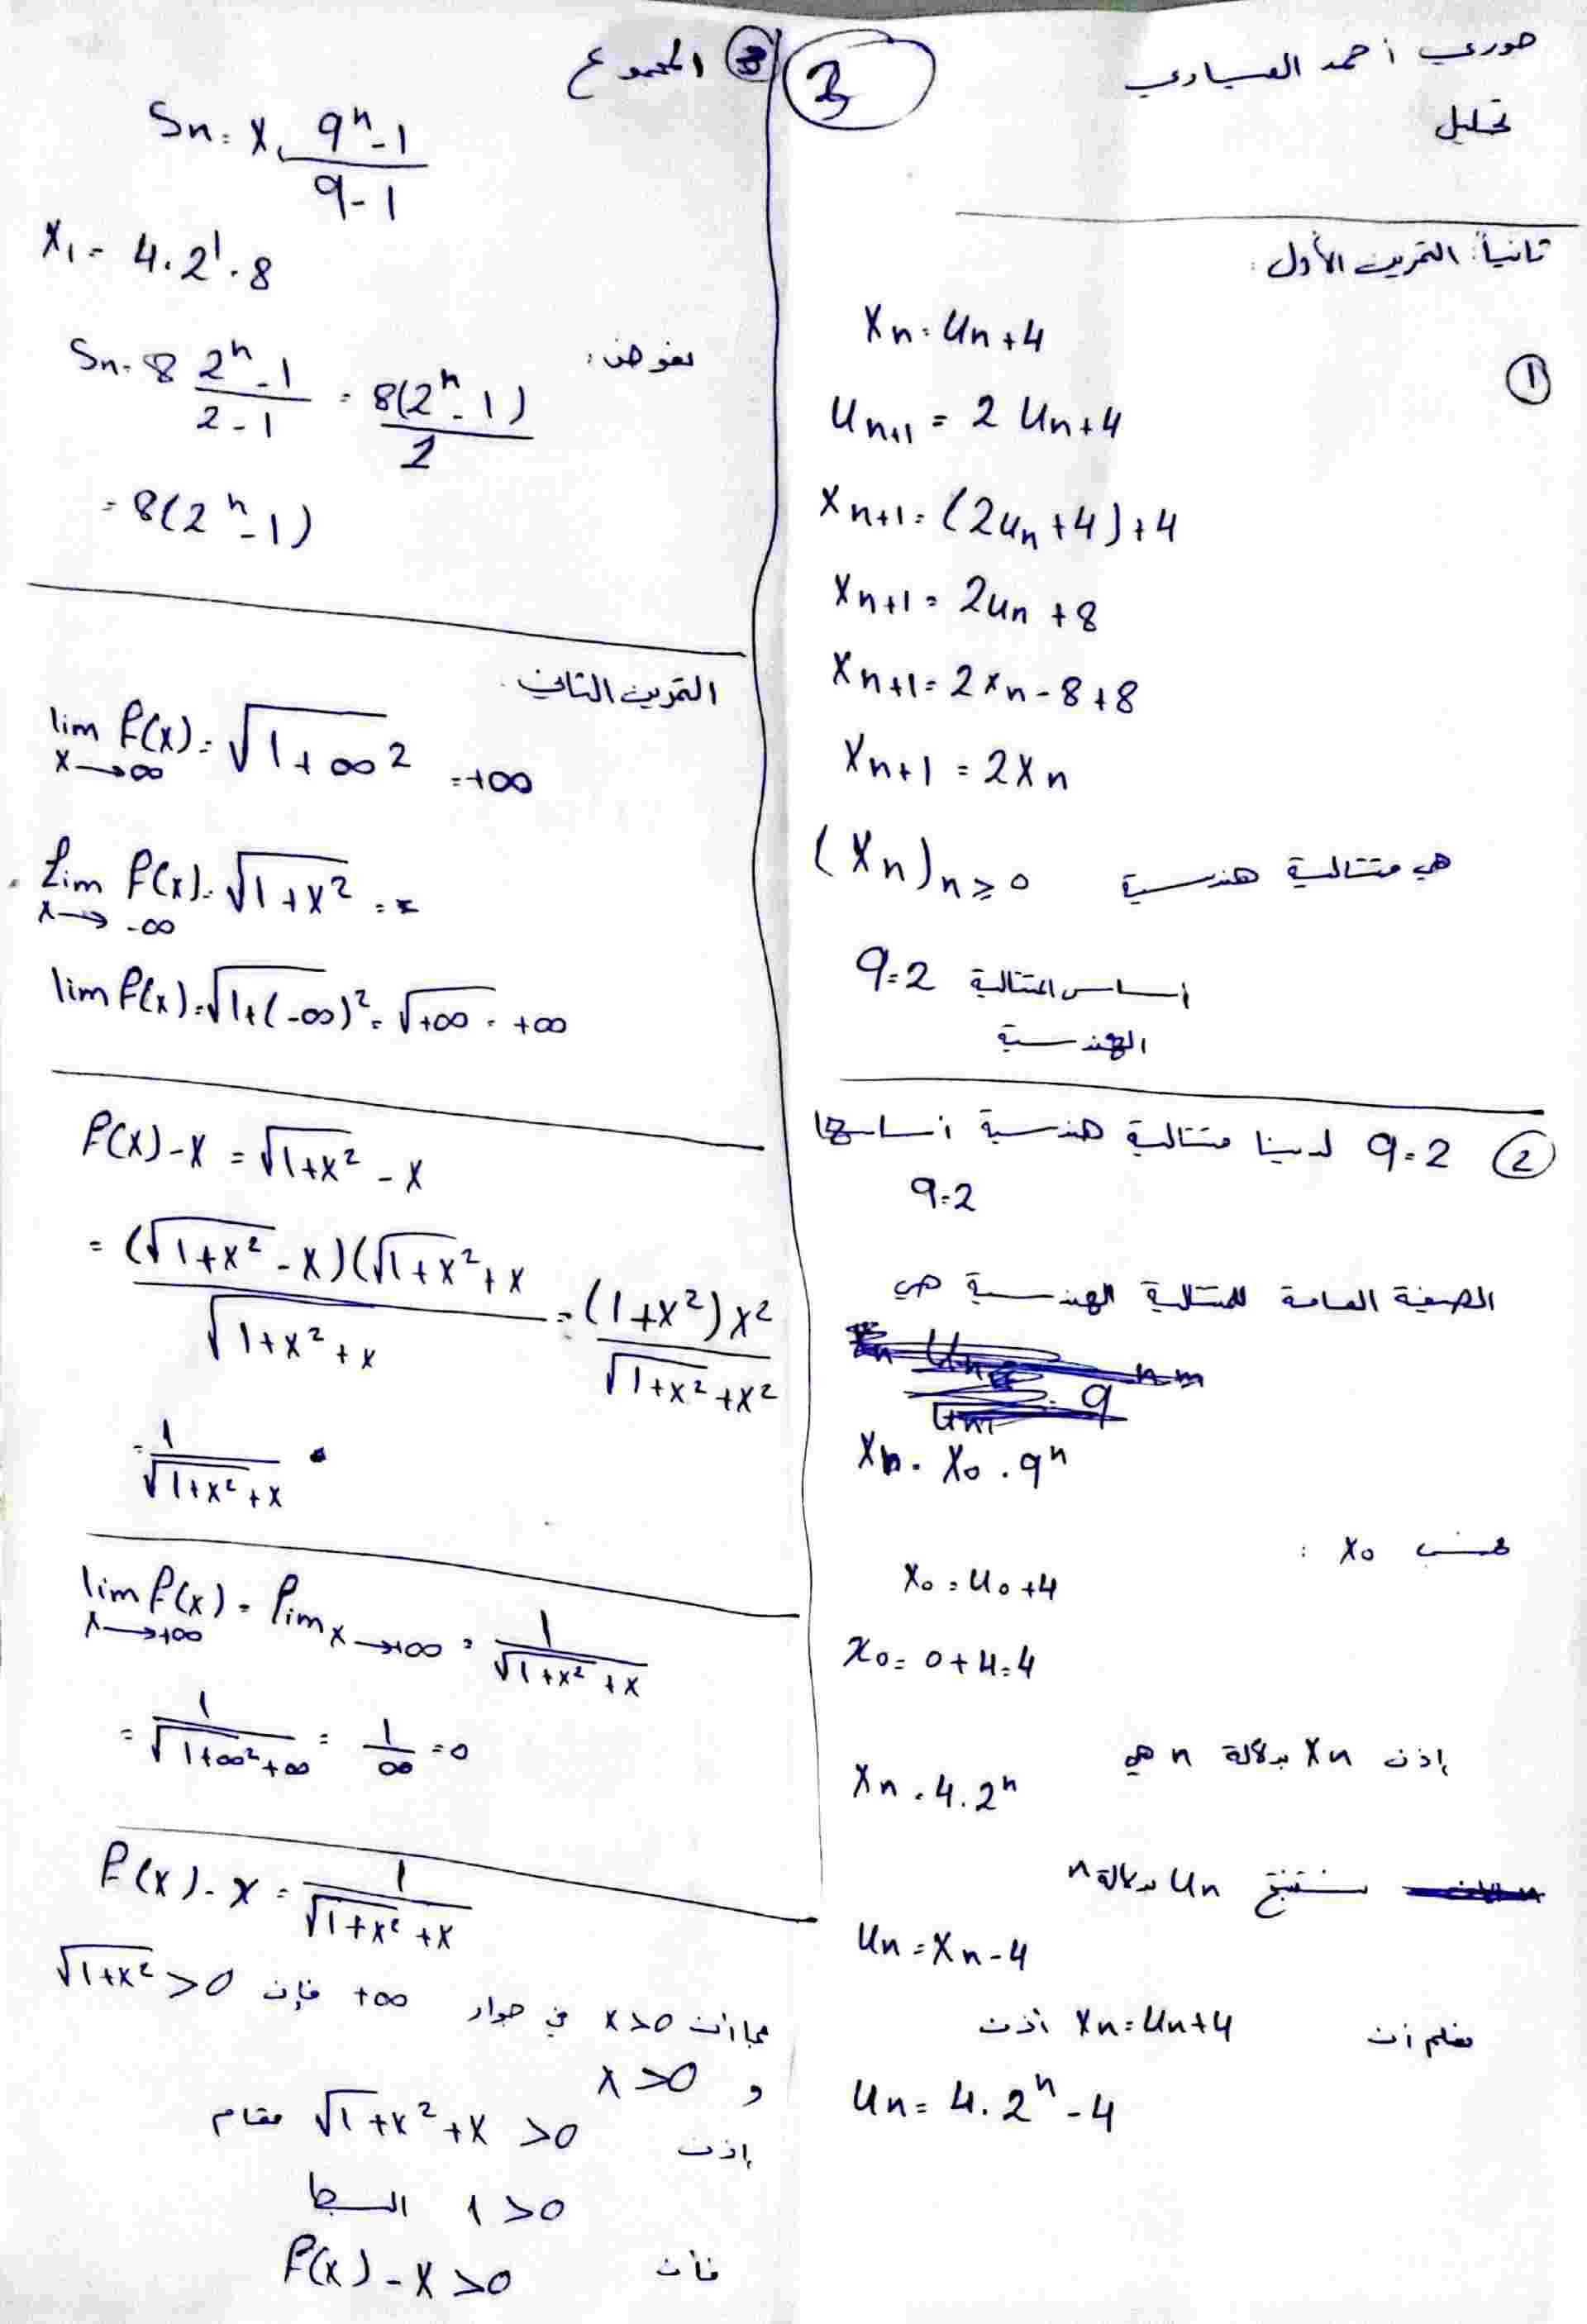 حوري أحمد العبادي
تحليل
3
ثانياً: التمرين الأول:
①
Xn = Un+4
Un+1 = 2 Un+4
Xn+1 = (2un+4)+4
Xn+1 = 2un +8
Xn+1 = 2xn - 8+8
Xn+1 = 2Xn
(Xn)n≥0 هي متتالية هندسية
أساس المتتالية q=2
الهندسية
② q=2 لدينا متتالية هندسية أساسها
q=2
الصيغة العامة للمتتالية الهندسية هي
Xn = X0 . q^n
نحسب X0 :
X0 = U0+4
X0 = 0+4=4
إذن Xn بدلالة n هي
Xn = 4.2^n
نستنتج Un بدلالة n
Un = Xn-4
نعلم أن Xn=Un+4 أذن
Un = 4.2^n-4
③ المجموع
Sn = X1 (q^n-1)/(q-1)
X1 = 4.2^1 = 8
نعوض:
Sn = 8 (2^n-1)/(2-1) = 8(2^n-1)/1
= 8(2^n-1)
التمرين الثاني
lim x→∞ f(x) = √(1+∞²) = +∞
lim x→-∞ f(x) = √(1+x²) =
lim f(x) = √(1+(-∞)²) = √+∞ = +∞
f(x)-x = √(1+x²) - x
= (√(1+x²)-x)(√(1+x²)+x / √(1+x²)+x = (1+x²)x² / √(1+x²)+x²
= 1/(√(1+x²)+x)
lim x→+∞ f(x) = lim x→+∞ = 1/(√(1+x²)+x)
= 1/(√(1+∞²)+∞) = 1/∞ = 0
f(x)-x = 1/(√(1+x²)+x)
بما أن x>0 في جوار +∞ فإن √(1+x²) >0
و x>0
إذن √(1+x²)+x >0 مقام
1>0 البسط
فأن f(x)-x>0